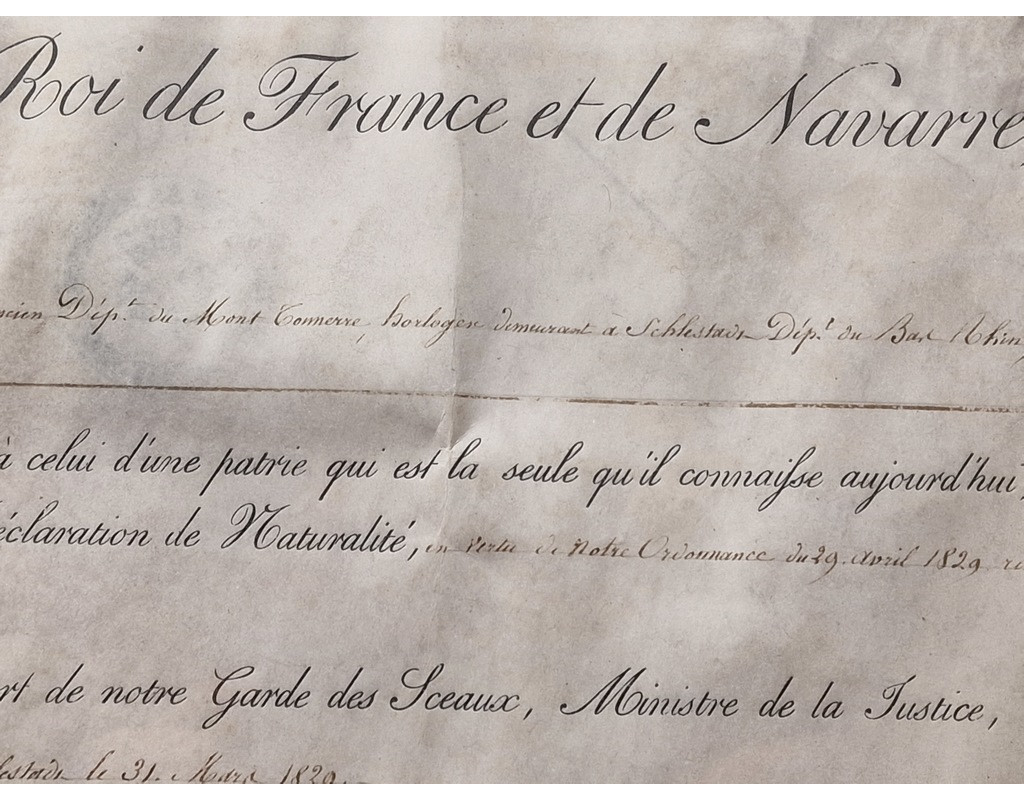 Roi de France et de Navarre,
ncien Dép.t du Mont Tonnerre, horloger demeurant à Schlestadt Dép.t du Bas Rhin,
à celui d'une patrie qui est la seule qu'il connaisse aujourd'hui,
éclaration de Naturalité, en vertu de Notre Ordonnance du 29. avril 1829 re
rt de notre Garde des Sceaux, Ministre de la Justice,
lestadt le 31. Mars 1829.